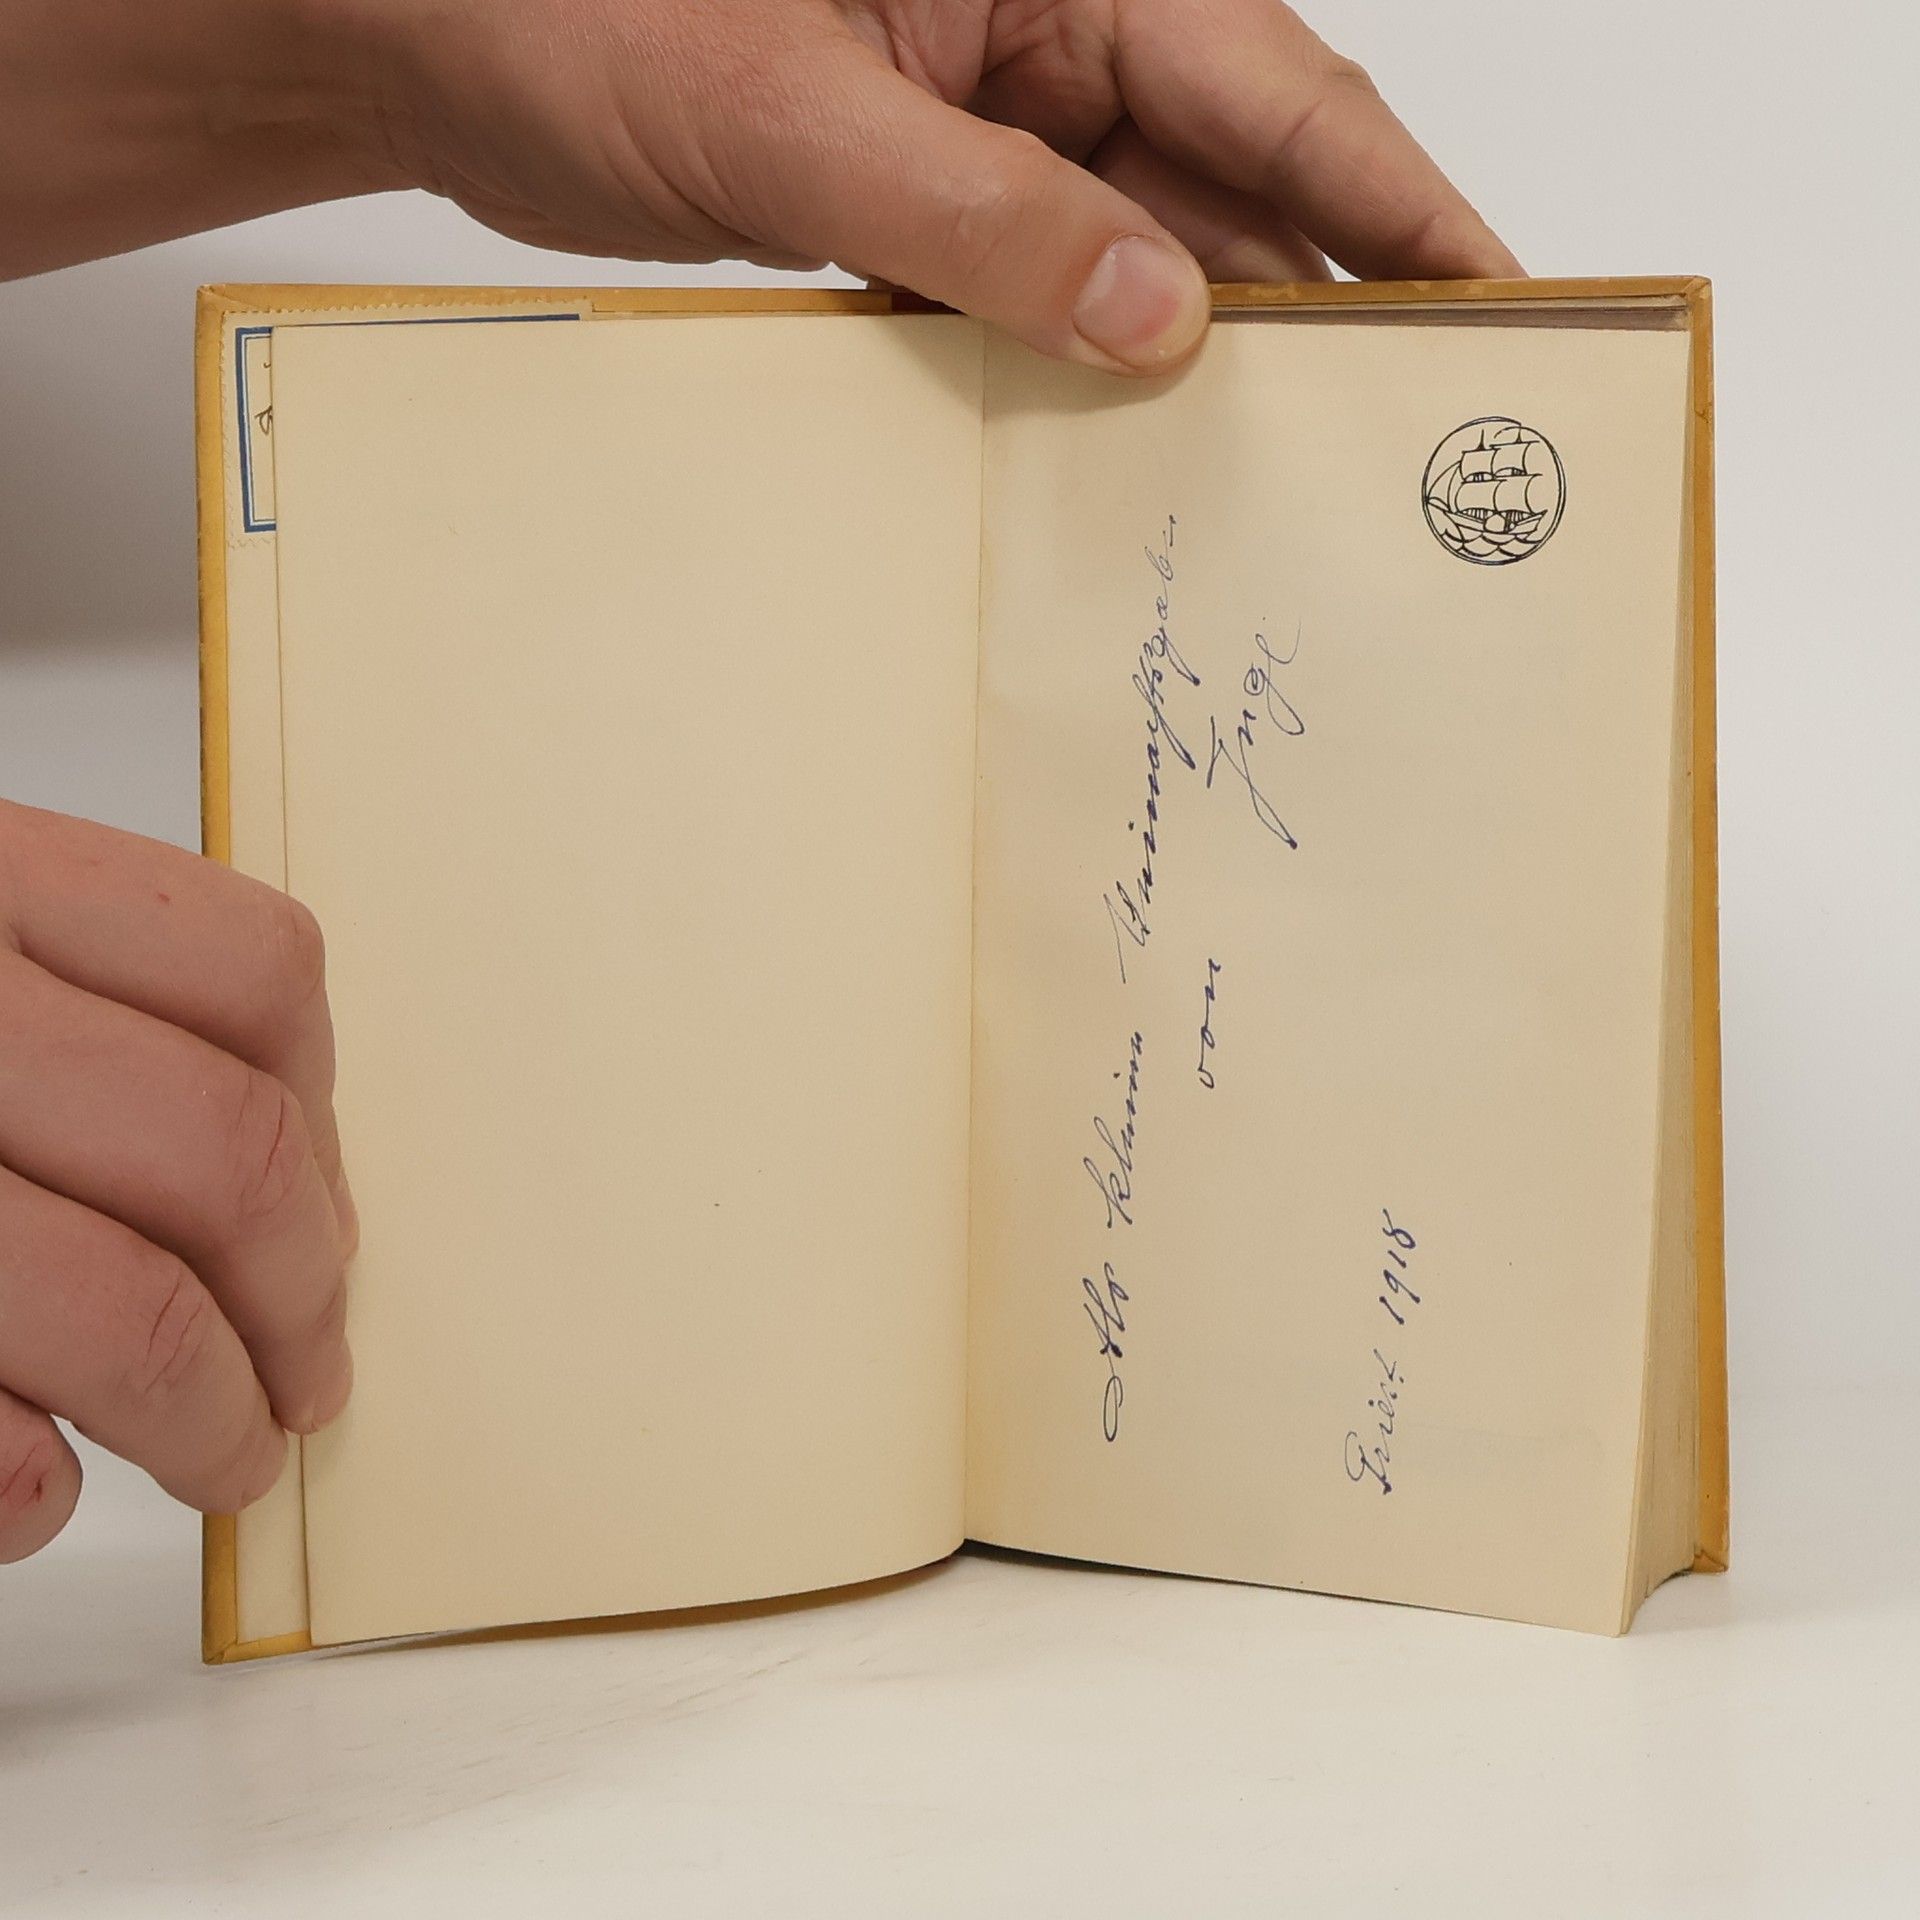 Als kleine Weihnachtsgabe
von Inge
1918